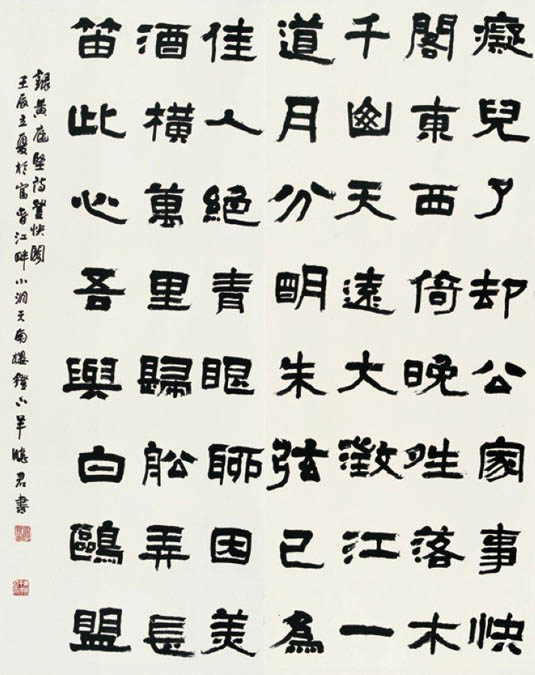 癡兒了却公家事快
閣東西倚晚晴落木
千山天遠大澂江一
道月分明朱弦已為
佳人絕青眼聊因美
酒橫萬里歸船弄長
笛此心吾與白鷗盟
錄黃庭堅詩登快閣
壬辰立夏於富春江畔小洞天南樓燈下羊曉君書